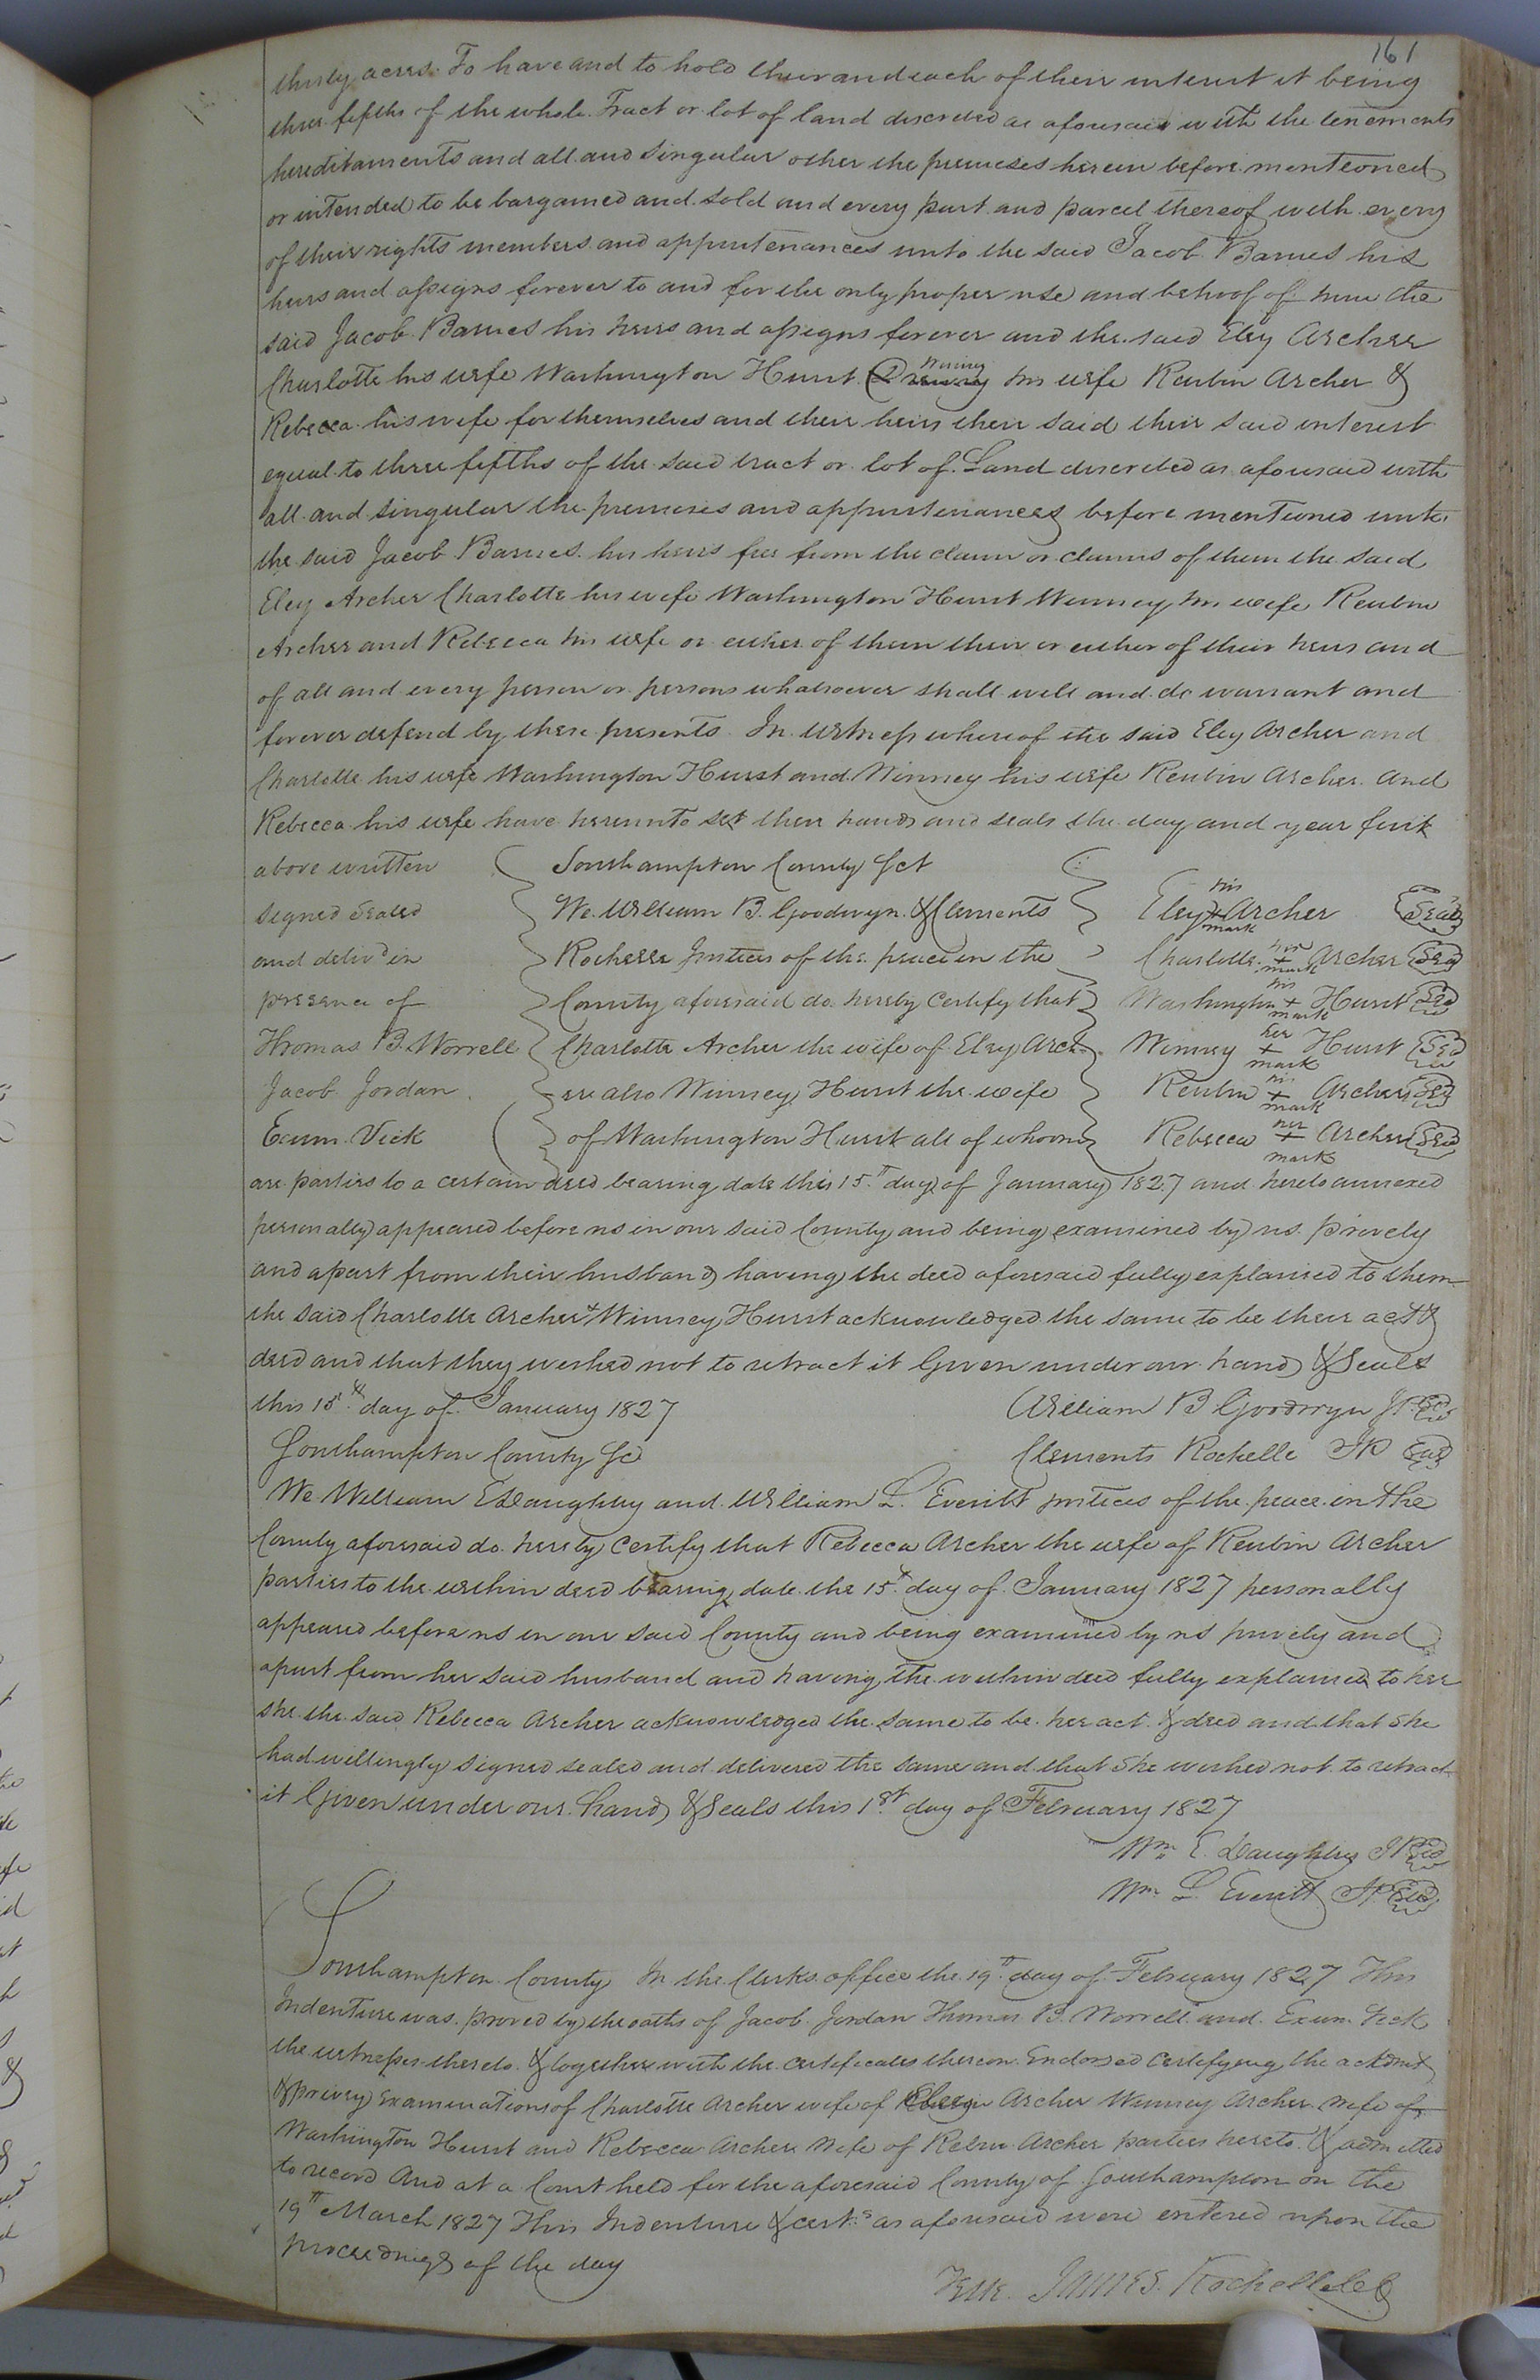 161
thirty acres. To have and to hold their and each of their interest it being
three fifths of the whole Tract or lot of land described as aforesaid with the tenements
hereditaments and all and singular other the premises herein before mentioned
or intended to be bargained and sold and every part and parcel thereof with every
of their rights members and appurtenances unto the said Jacob Barnes his
heirs and assigns forever to and for the only proper use and behoof of him the
said Jacob Barnes his heirs and assigns forever and the said Eley Archer
Winney
Charlotte his wife Washington Hurst his wife Reubin Archer &
Rebecca his wife for themselves and their heirs their said their said interest
equal to three fifths of the said tract or lot of Land described as aforesaid with
all and singular the premises and appurtenances before mentioned unto
the said Jacob Barnes his heirs free from the claim or claims of them the said
Eley Archer Charlotte his wife Washington Hurst Winney his wife Reubin
Archer and Rebecca his wife or either of them their or either of their heirs and
of all and every person or persons whatsoever shall will and do warrant and
forever defend by these presents In witness whereof the said Eley Archer and
Charlotte his wife Washington Hurst and Winney his wife Reubin Archer and
Rebecca his wife have hereunto set their hands and seals the day and year first
above written
signed sealed
and delivd in
presence of
Thomas B. Worrell
Jacob Jordan
Exum Vick
Southampton County Sct
We William B. Goodwyn & Clements
Rochelle Justices of the peace in the
County aforesaid do hereby certify that
Charlotte Archer the wife of Eley Arch-
er also Winney Hurst the wife
of Washington Hurst all of whom
his
Eley + Archer Seal
mark
her
Charlotte + Archer Seal
mark
his
Washington + Hurst Seal
mark
her
Winney + Hurst Seal
mark
his
Reubin + Archer Seal
mark
her
Rebecca + Archer Seal
mark
are parties to a certain deed bearing date this 15th day of January 1827 and hereto annexed
personally appeared before us in our said County and being examined by us prively
and apart from their husband having the deed aforesaid fully explained to them
the said Charlotte Archer & Winney Hurst acknowledged the same to be their act &
deed and that they wished not to retract it Given under our hand & Seals
this 15th day of January 1827
William B Goodwyn JP Seal
Southampton County Sc
Clements Rochelle JP Seal
We William E Daughtry and William L. Everitt justices of the peace in the
County aforesaid do hereby certify that Rebecca Archer the wife of Reubin Archer
parties to the within deed bearing date the 15th day of January 1827 personally
appeared before us in our said County and being examined by us prively and
apart from her said husband and having the within deed fully explained to her
she the said Rebecca Archer acknowledged the same to be her act & deed and that she
had willingly signed sealed and delivered the same and that she wished not to retract
it Given under our hand & Seals this 1st day of February 1827
Wm E. Daughtry JP Seal
Wm L. Everitt JP Seal
Southampton County In the Clerks office the 19th day of February 1827 This
Indenture was proved by the oaths of Jacob Jordan Thomas B. Worrell and Exum Vick
the witnesses thereto & together with the certificates thereon Endorsed certifying the acknmt
& privy Examinations of Charlotte Archer wife of Archer Winney Archer wife of
Washington Hurst and Rebecca Archer wife of Reubn Archer parties hereto & admitted
to record And at a Court held for the aforesaid County of Southampton on the
19th March 1827 This Indenture & certs as aforesaid were entered upon the
proceedings of the day
Teste. James Rochelle CC